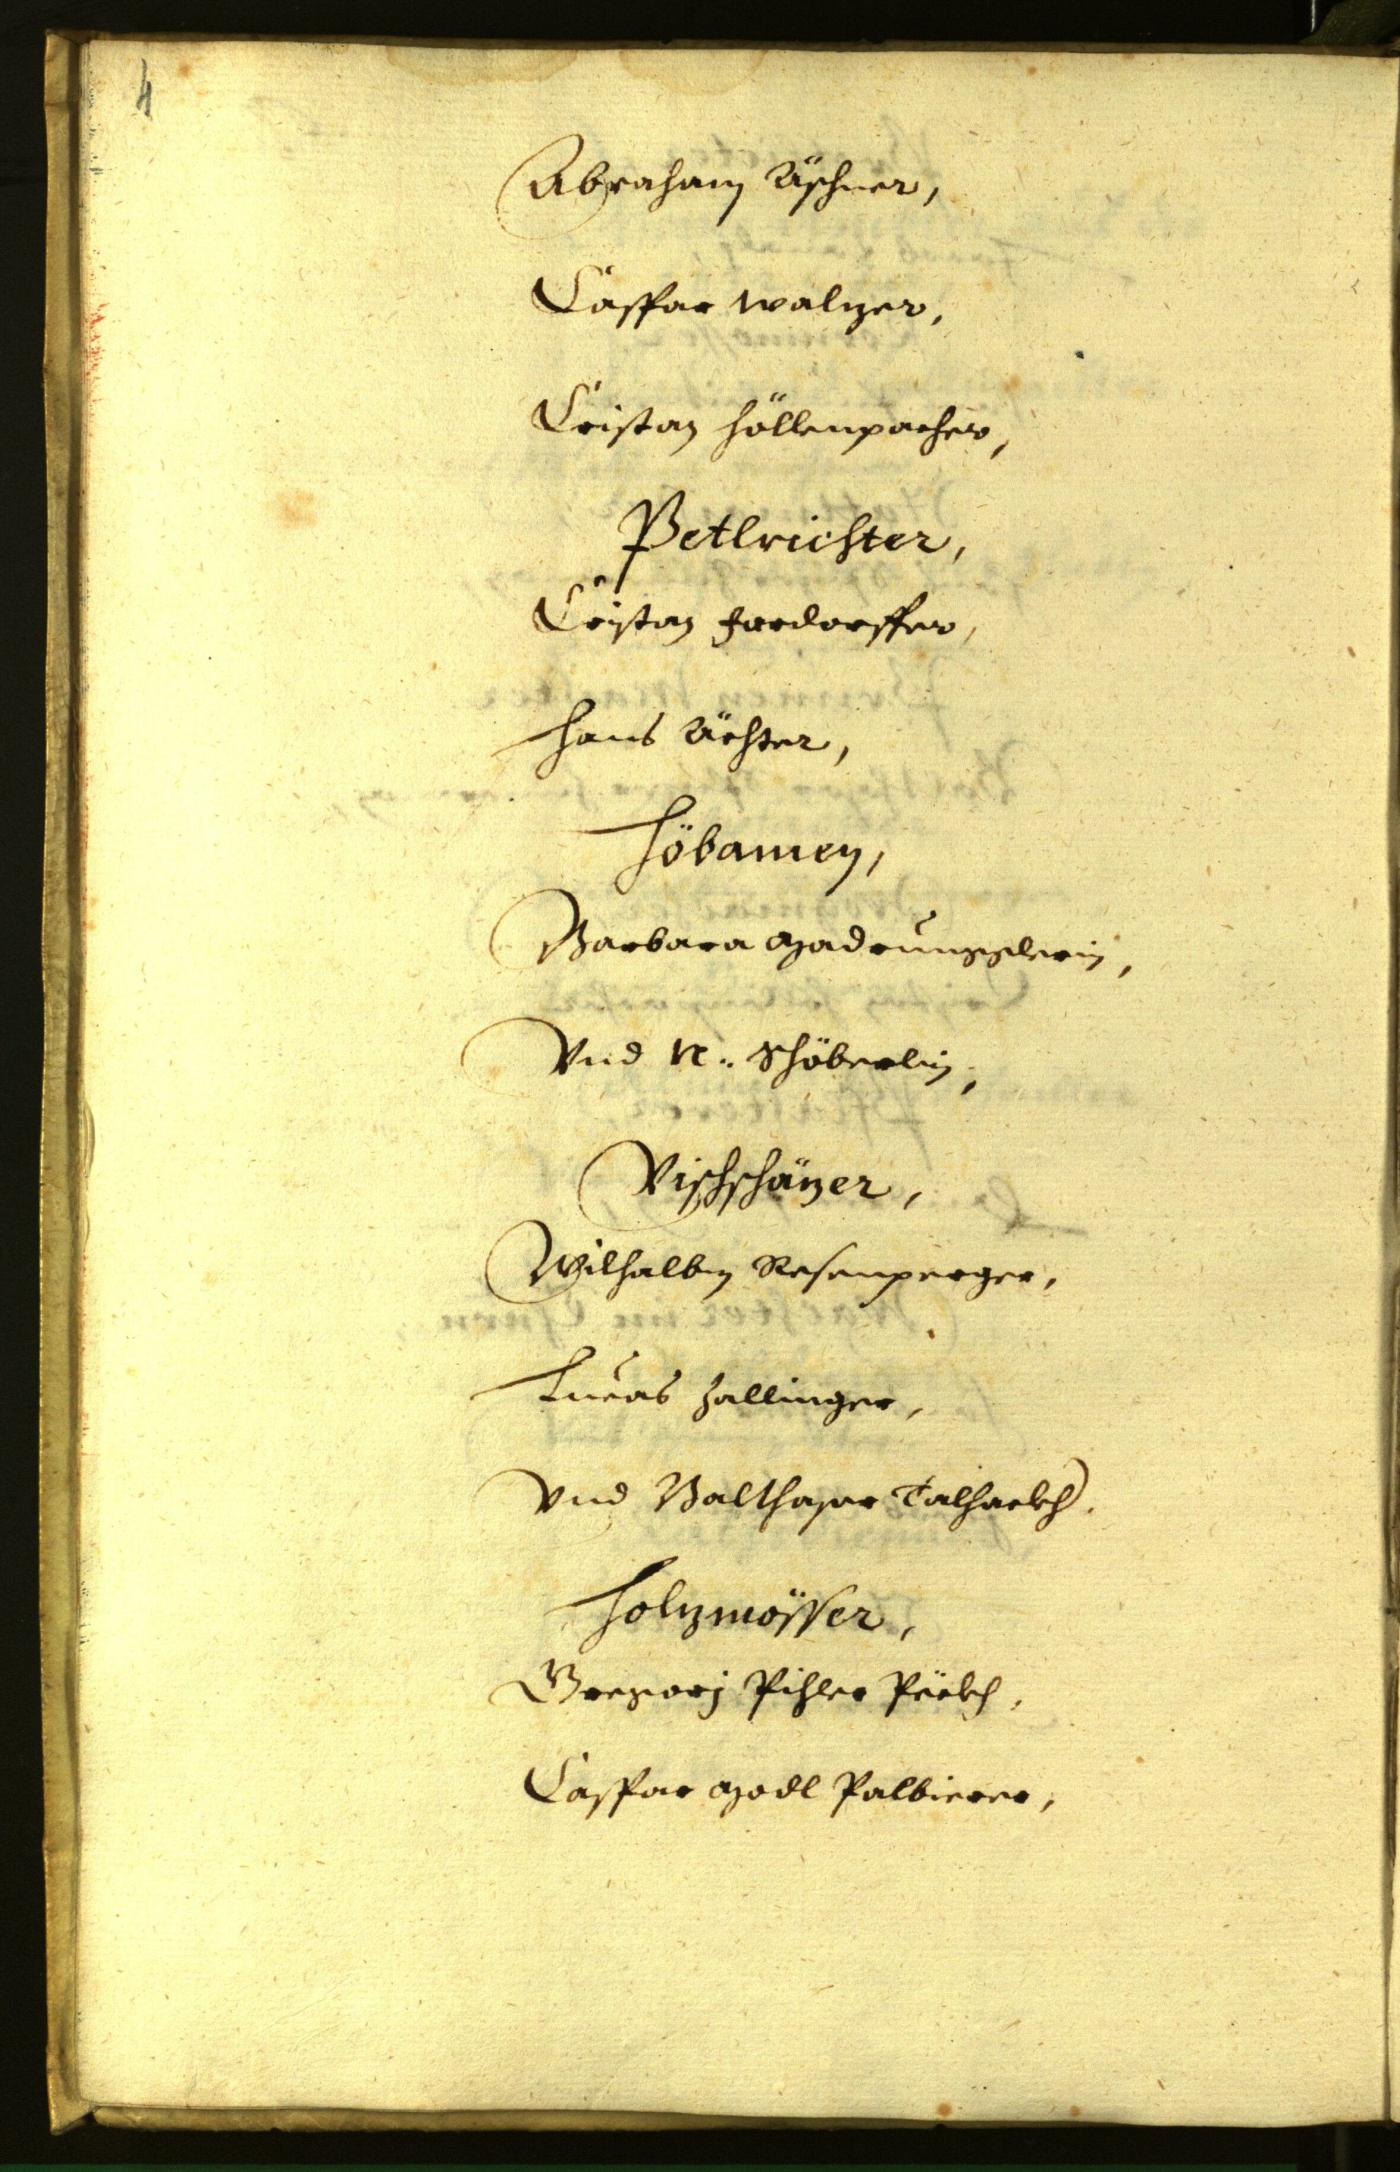 4
Abraham Äschner,
Caspar Walzer,
Cristan Höllenpacher,
Petlrichter,
Cristan Fordorffer,
Hans Ächter,
Höbamen,
Barbara Madrungglerin,
Vnd N: Schöberlin,
Vischschäzer,
Wilhalbm Resenperger,
Lucas Zallinger,
Vnd Balthasar Talhackh.
Holzmösser,
Gregorj Pihler Peckh,
Caspar Modl Palbierer,